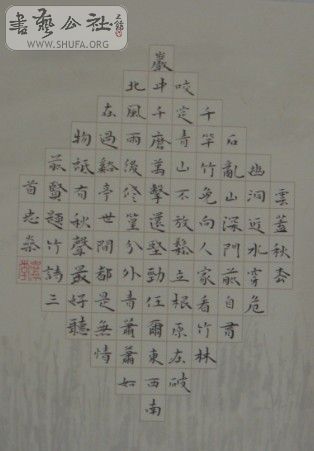 雲蓋秋
幽洞近水穿危
石亂山深門前自
千竿竹色向人家看竹林
咬定青山不放鬆立根原在破
巖中千磨萬擊還堅勁任爾東西南
北風雨後修篁分外青蕭蕭如
在過谿亭世間都是無情
物祇有秋聲最好聽
賢題竹詩三
首志燊
書藝公社
WWW.SHUFA.ORG